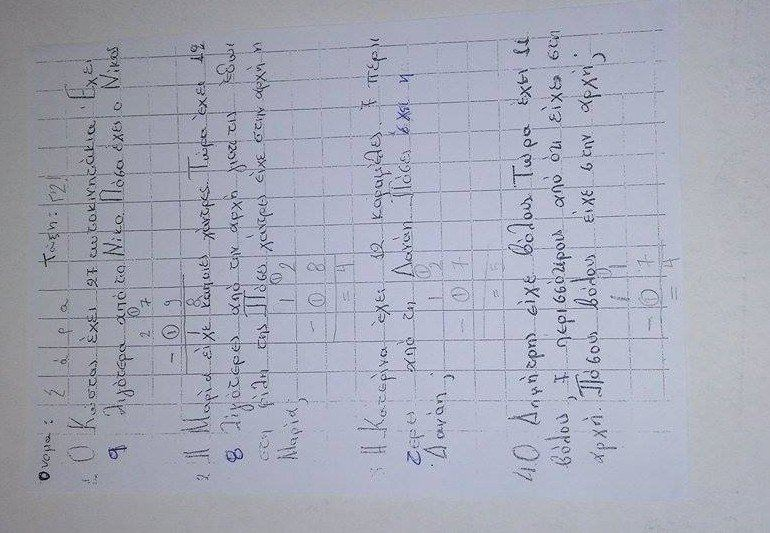 Όνομα: Σάρα Τάξη: Γ2
1. Ο Κώστας έχει 27 αυτοκινητάκια. Έχει
9 λιγότερα από το Νίκο. Πόσα έχει ο Νίκος
2 ① 7
- ① 9
1 8
2 Η Μαρία είχε κάποιες χάντρες. Τώρα έχει 12
8 λιγότερες από την αρχή γιατί τις έδωσε
στη φίλη της. Πόσες χάντρες είχε στην αρχή η
Μαρία;
1 ① 2
- ① 8
= 4
3 Η Κατερίνα έχει 12 καραμέλες. 7 περισ
τερες από τη Δανάη. Πόσες έχει η
Δανάη;
1 ① 2
- ① 7
= 5
4 Ο Δημήτρης είχε βόλους. Τώρα έχει 11
βόλους, 7 περισσότερους από ότι είχε στη
αρχή. Πόσους βόλους είχε στην αρχή;
1 ① 1
- ① 7
= 4